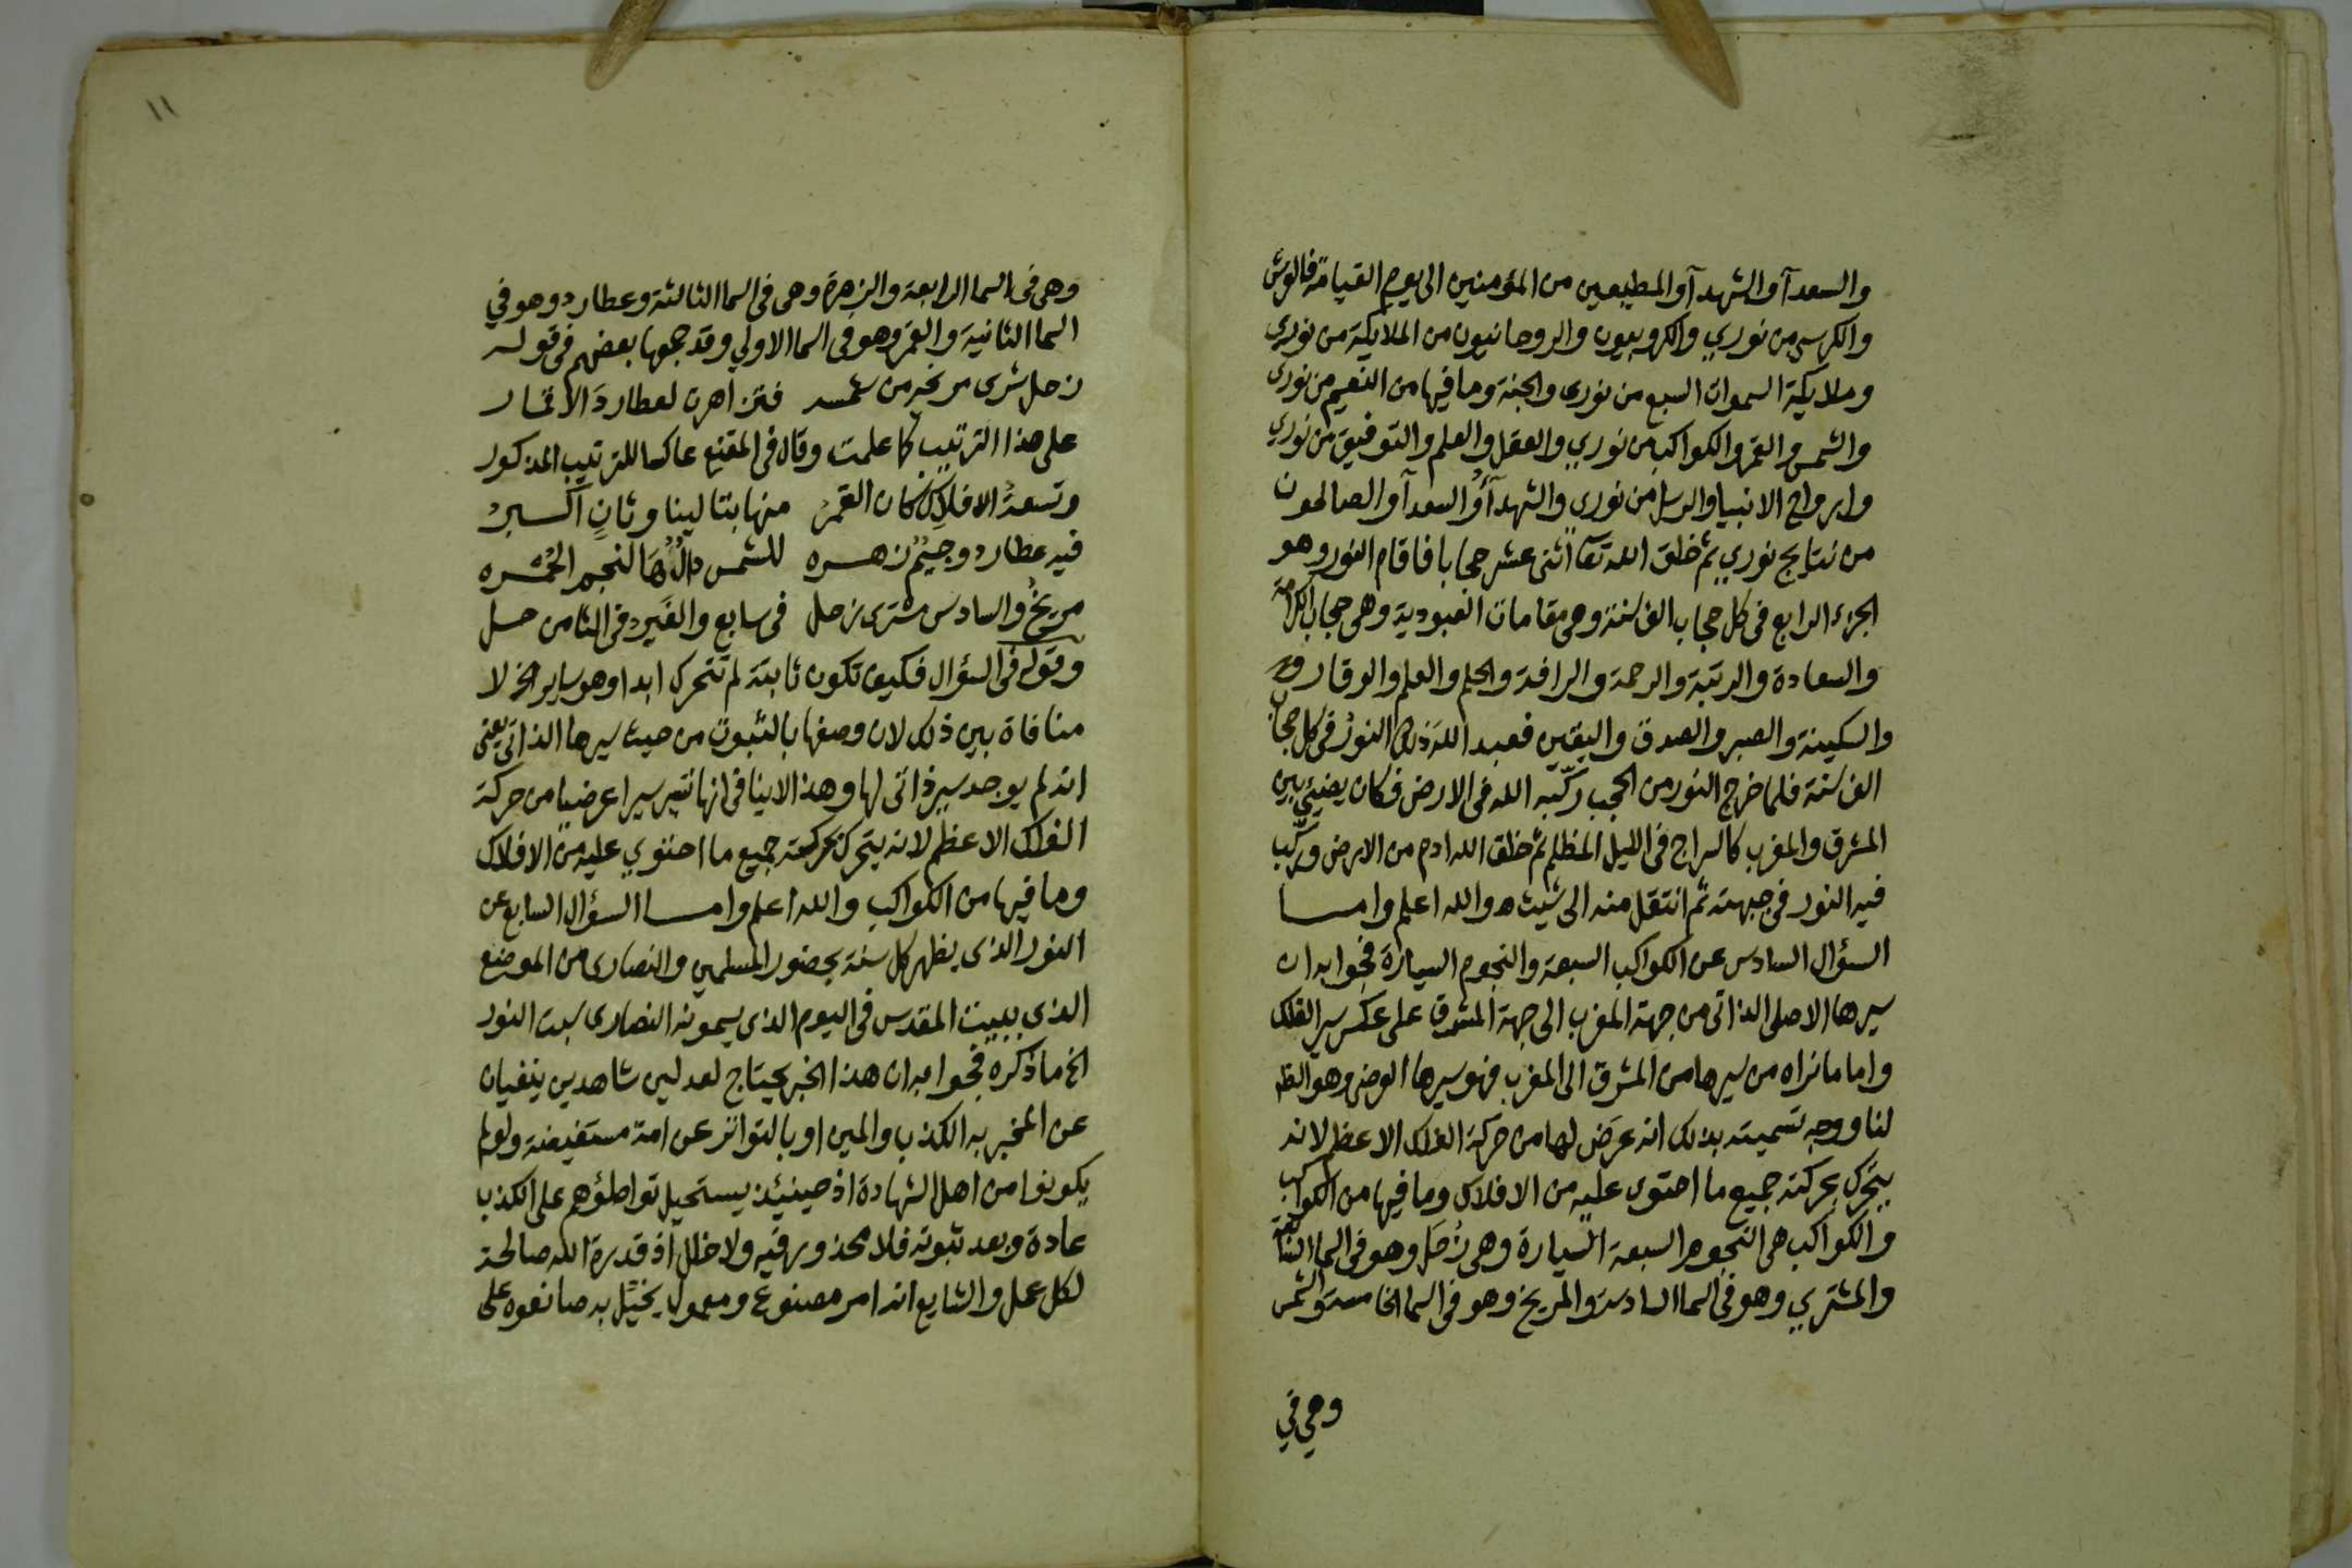 والسعدآ والشهدآ والمطيعين من المؤمنين الى يوم القيامة فالعرش
والكرسي من نوري والكروبيون والروحانيون من الملايكة من نوري
وملايكة السموات السبع من نوري والجنة وما فيها من النعيم من نوري
والشمس والقمر والكواكب من نوري والعقل والعلم والتوفيق من نوري
وارواح الانبيا والرسل من نوري والشهدآ والسعدآ والصالحون
من نتايج نوري ثم خلق الله تعآ اثنى عشر حجابا فاقام النور وهو
الجزء الرابع في كل حجاب الف سنة وهي مقامات العبودية وهى حجاب الكرامة
والسعادة والرتبة والرحمة والرافة والحلم والعلم والوقار
والسكينة والصبر والصدق واليقين فعبد الله ذلك النور في كل حجاب
الف سنة فلما خرج النور من الحجب ركّبه الله في الارض فكان يضيئ بين
المشرق والمغرب كالسراج في الليل المظلم ثم خلق الله ادم من الارض وركّب
فيه النور في جبهته ثم انتقل منه الى شيث والله اعلم وامـــا
السؤال السادس عن الكواكب السبعة والنجوم السيارة فجوابه ان
سيرها الاصلى الذاتى من جهة المغرب الى جهة المشرق على عكس سير الفلك
واما ما نراه من سيرها من المشرق الى المغرب فهو سيرها العرضى وهو الظ
لنا ووجه تسميته بذلك انه عرَض لها من حركة الفلك الاعظم لانه
يتحرك بحركته جميع ما احتوى عليه من الافلاك وما فيها من الكواكب
والكواكب هى النجوم السبعة السيارة وهى زُحَل وهو في السما السابعة
والمشتري وهو في السما السادسة والمريخ وهو في السما الخامسة والشمس
وهي في
١١
وهى فى السما الرابعة والزهرة وهى فى السما الثالثة وعطارد وهو في
السما الثانية والقمر وهو فى السما الاولي وقد جمعها بعضهم في قوله
زحل شرى مريخه من شمسه فتزاهرت لعطارد الاقمار
على هذا الترتيب كما علمت وقال فى المقنع عاكسا للترتيب المذكور
وتسعة الافلاك كان القمر منها بتالينا وثانٍ اكسبر
فيه عطارد وجيمٌ زهـــره للشمس دالٌ هَا لنجم الحُمْـره
مريخُ والسادس مشترى زحل في سابع والغير فى الثامن حـل
وقوله في السؤال فكيف تكون ثابتة لم تتحرك ابدا وهو ساير الخ لا
منافاة بين ذلك لان وصفها بالثبوت من حيث سيرها الذاتى يعنى
انه لم يوجد سير ذاتى لها وهذا لاينافى انها تسير سيرا عرضيا من حركة
الفلك الاعظم لانه يتحرك بحركته جميع ما احتوي عليه من الافلاك
وما فيها من الكواكب والله اعلم وامـــا السؤال السابع عن
النور الذى يظهر كل سنة بحضور المسلمين والنصارى من الموضع
الذى ببيت المقدس فى اليوم الذى يسمونه النصارى سبت النور
الخ ما ذكره فجوابه ان هذا الخبر يحتاج لعدلين شاهدين ينفيان
عن المخبر به الكذب والمين او بالتواتر عن امة مستفيضة ولو لم
يكونوا من اهل الشهادة اذ حينئذ يستحيل تواطؤهم على الكذب
عادة وبعد ثبوته فلا محذور فيه ولا خلل اذ قدرة الله صالحة
لكل عمل والشايع انه امر مصنوع ومعمول يخيّل به صانعوه على